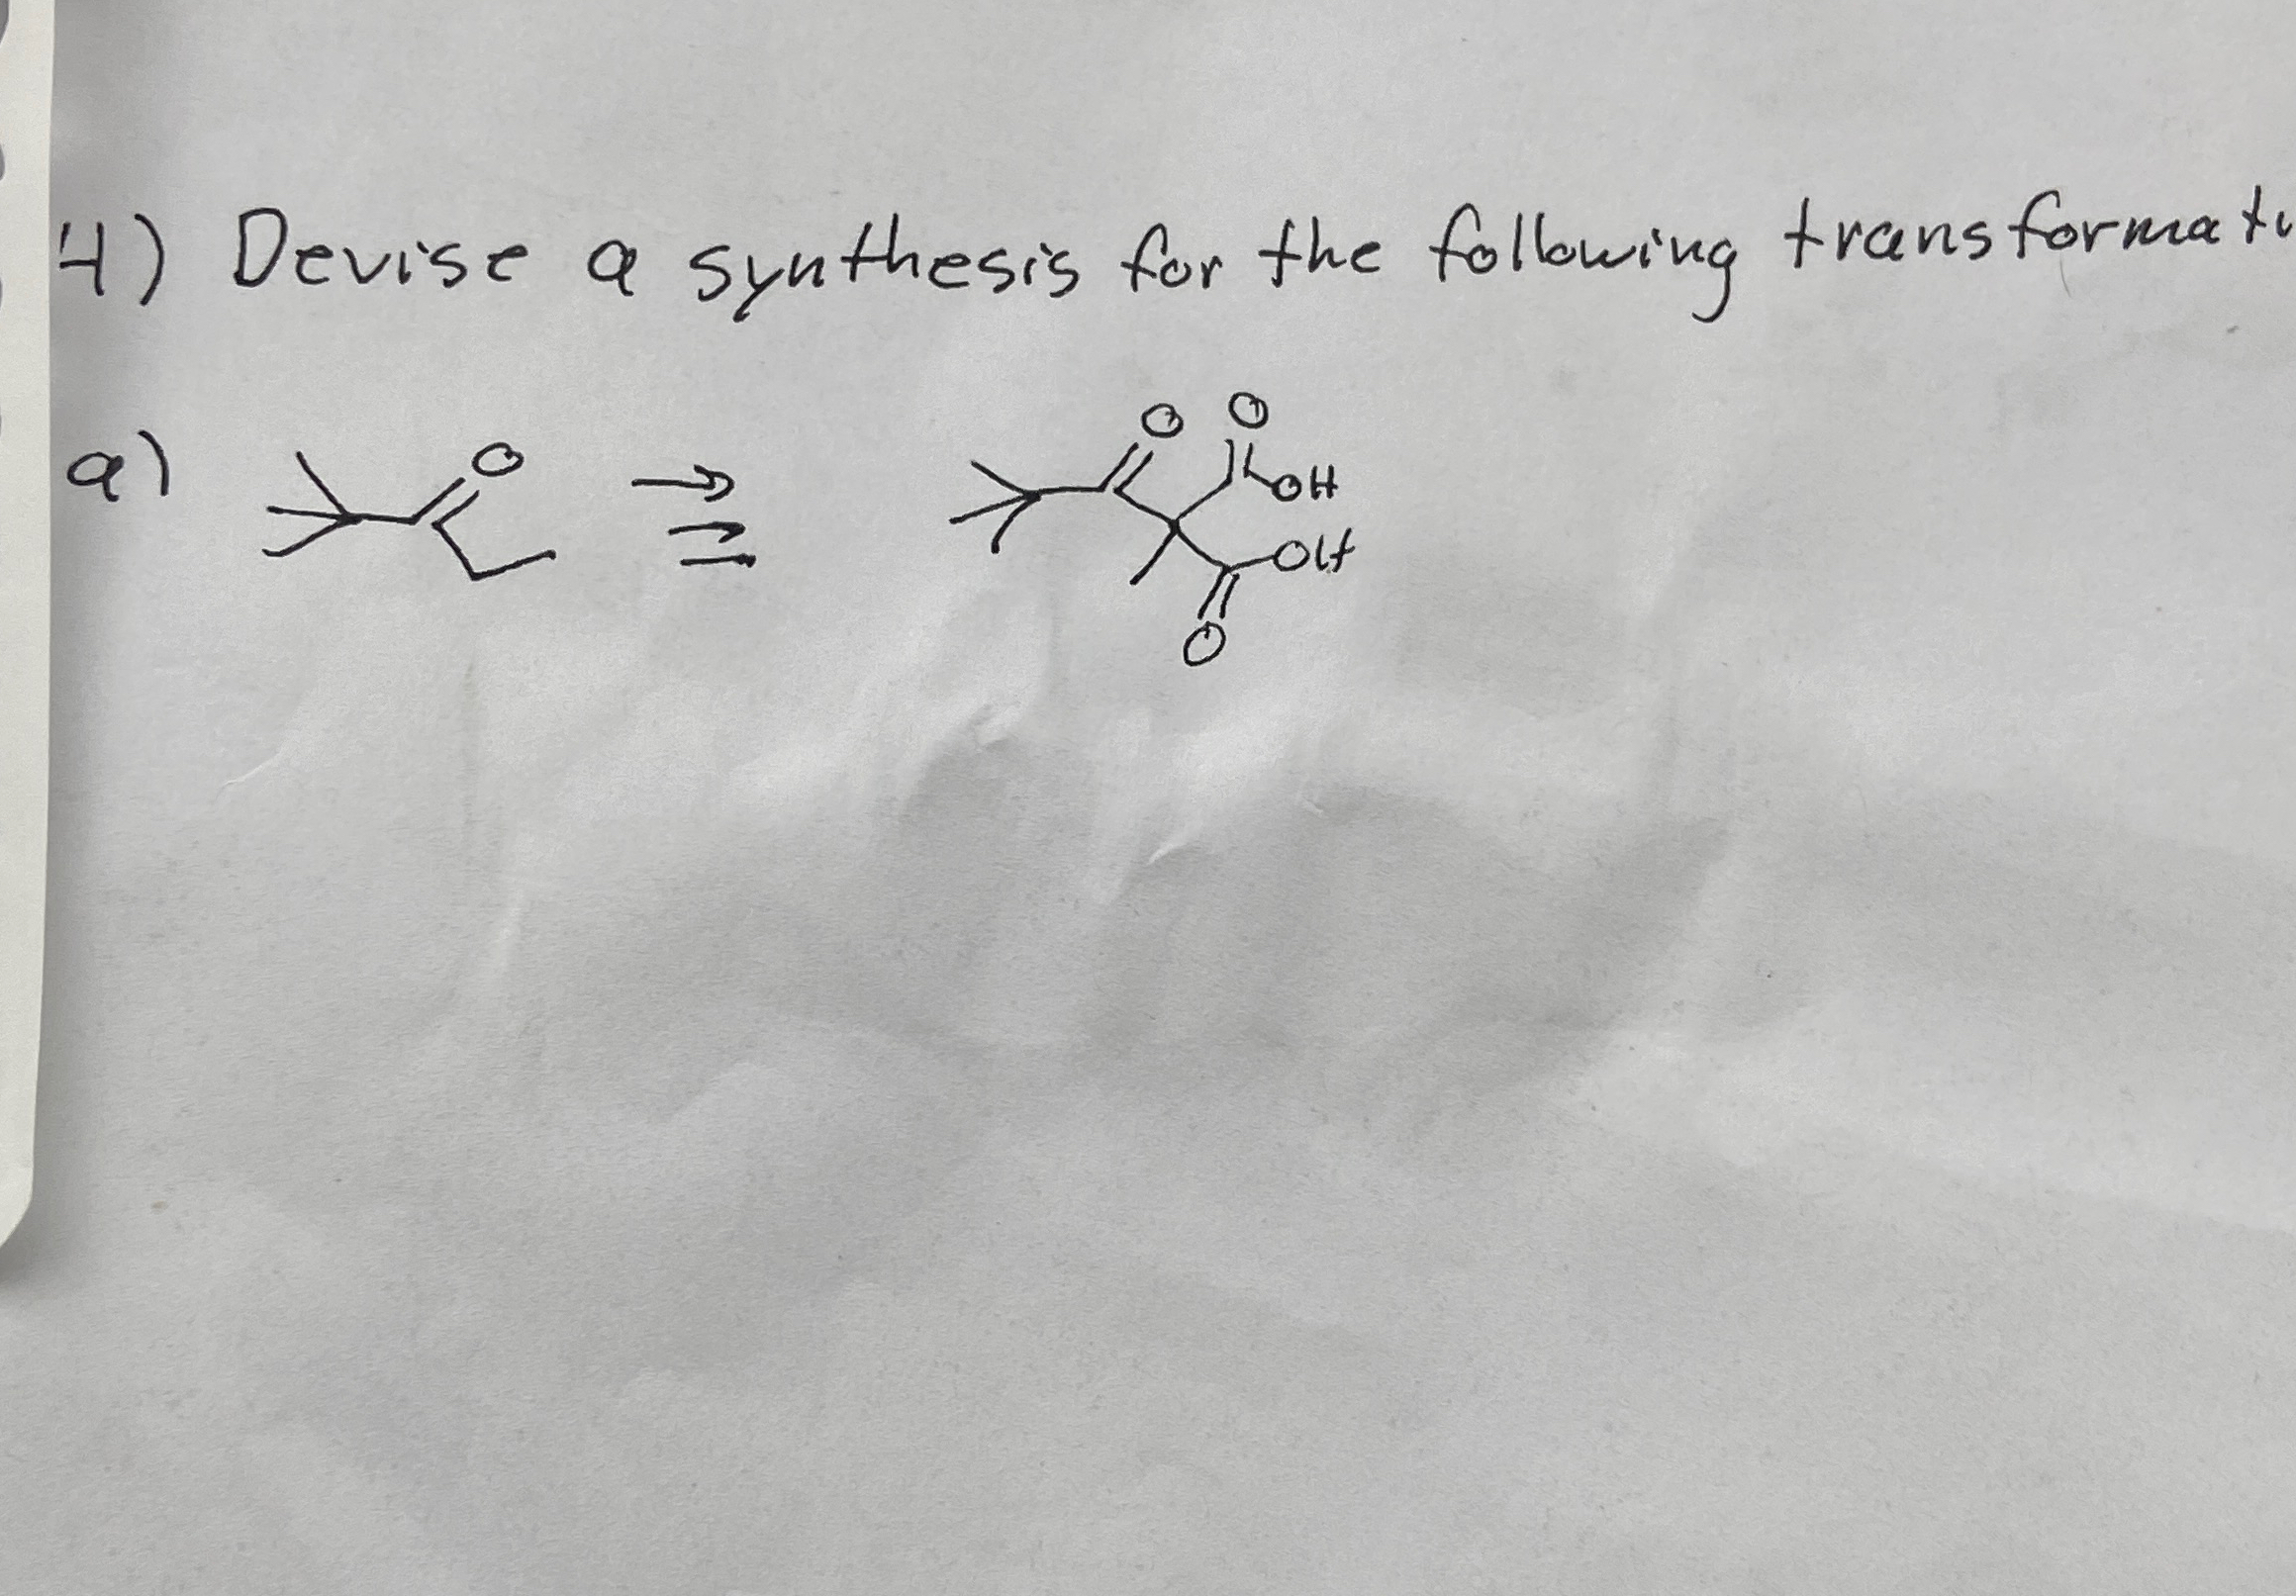 4) Devise a synthesis for the following
a)
O
O O
OH
OH
O